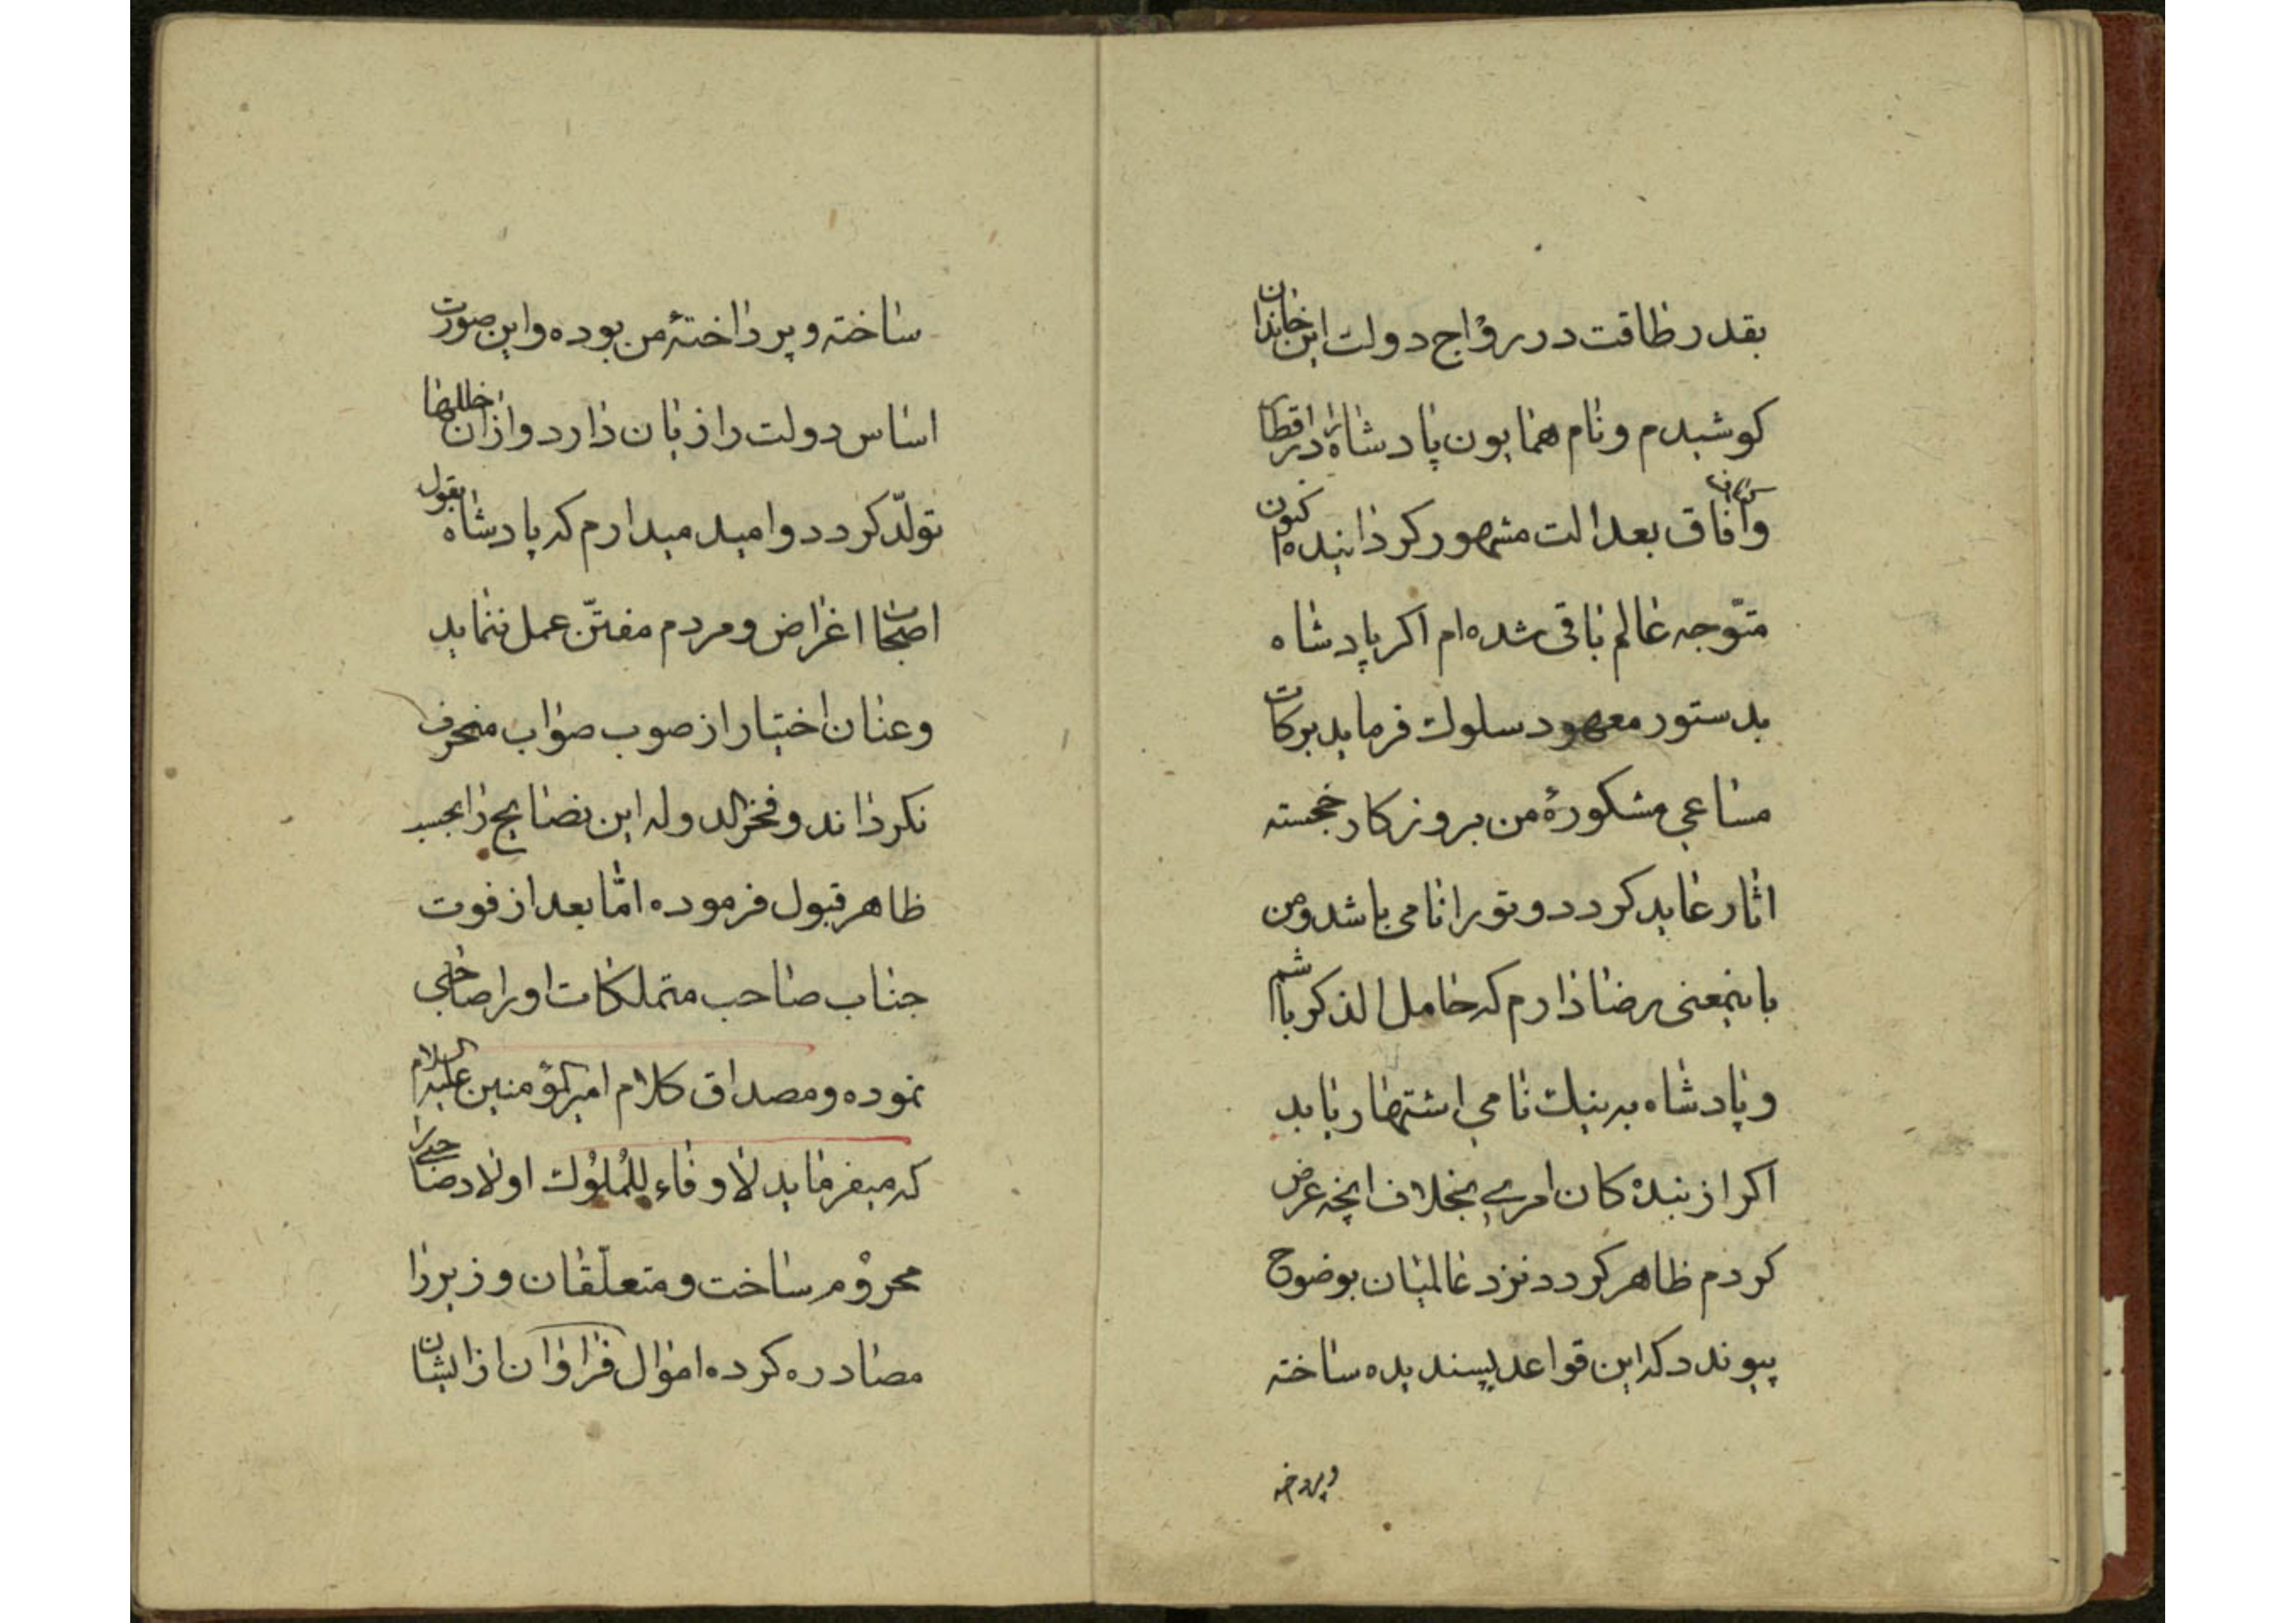 بقدر طاقت در رواج دولت این خاندان
کوشیدم و نام همایون پادشاه را در اقطار
و اکناف آفاق بعدالت مشهور کردانیده ام کنون
متوجه عالم باقی شده ام اکر پادشاه
بدستور معهود سلوک فرماید برکات
مساعی مشکورهٔ من بروزکار خجسته
اثار عاید کردد و تو را نامی باشد و من
باینمعنی رضا دارم که خامل الذکر باشم
و پادشاه به نیک نامی اشتهار یابد
اکر از بنده کان امری بخلاف انچه عرض
کردم ظاهر کردد نزد عالمیان بوضوح
پیوندد که این قواعد پسندیده ساخته
و پرداخته
ساخته و پرداختهٔ من بوده و این صورت
اساس دولت را زیان دارد و از ان خللها
تولّد کردد و امید میدارم که پادشاه بقول
اصحاب اغراض و مردم مفتّن عمل ننماید
و عنان اختیار از صوب صواب منحرف
نکرداند و فخر الدوله این نصایح را بحسب
ظاهر قبول فرموده امّا بعد از فوت
جناب صاحب متملکات او را صاحبی
نموده و مصداق کلام امیر المؤمنین علیه السلام
که میفرماید لا وفاء للمُلُوک اولاد صاحب را
محروم ساخت و متعلّقان وزیر را
مصادره کرده اموال فراوان از ایشان